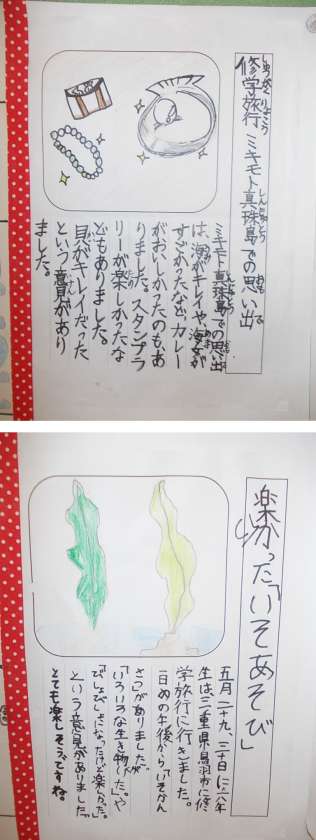 修学旅行 ミキモト真珠島での思い出
しゅうがくりょこう
しんじゅとう
おも
で
ミキモト真珠島での思い出
は、海がキレイや、海女が
すごかったなど、カレー
がおいしかったのもあ
りました。スタンプラ
リーが楽しかったな
どもありました。
貝がキレイだった
という意見があり
ました。
楽かった「いそあそび」
五月二十九、三十日に六年
生は三重県鳥羽市に修
学旅行に行きました。
一日めの午後から「いそかん
さつ」がありました。
「いろいろな生き物がいた。」や
「びしょびしょになったけど楽しかった。」
という意見がありました。
とても楽しそうですね。